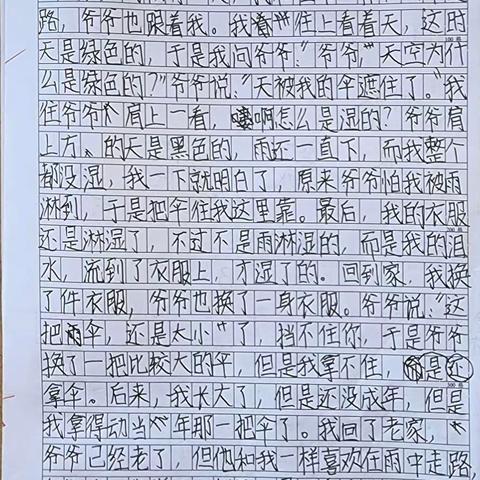 路，爷爷也跟着我。我往上看着天，这时
天是绿色的，于是我问爷爷："爷爷，天空为什
么是绿色的？"爷爷说："天被我的伞遮住了。"我
往爷爷肩上一看，啊怎么是湿的？爷爷肩
上方的天是黑色的，雨还一直下，而我整个
都没湿，我一下就明白了，原来爷爷怕我被雨
淋到，于是把伞往我这里靠。最后，我的衣服
还是淋湿了，不过不是雨淋湿的，而是我的泪
水，流到了衣服上，才湿了的。回到家，我换
了件衣服，爷爷也换了一身衣服。爷爷说："这
把雨伞，还是太小了，挡不住你，于是爷爷
换了一把比较大的伞，但是我拿不住，还
拿伞。后来，我长大了，但是还没成年，但是
我拿得动当年那一把伞了。我回了老家，
爷爷已经老了，但他和我一样喜欢在雨中走路，